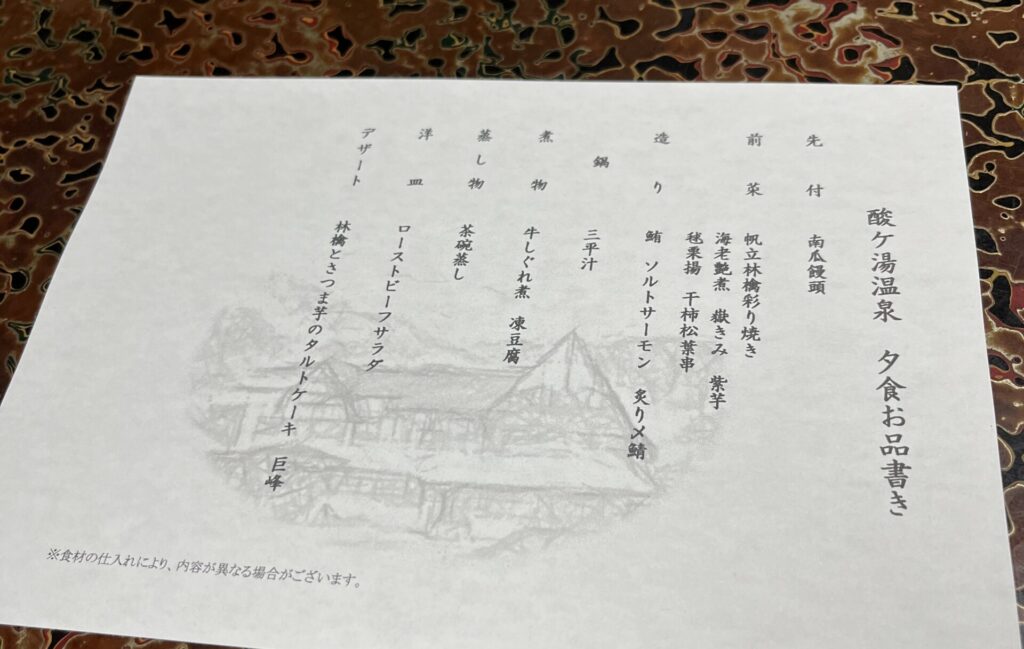 酸ケ湯温泉　夕食お品書き
先付　南瓜饅頭
前菜　帆立林檎彩り焼き
海老艶煮　嶽きみ　紫芋
毬栗揚　干柿松葉串
造り　鮪　ソルトサーモン　炙り〆鯖
鍋　三平汁
煮物　牛しぐれ煮　凍豆腐
蒸し物　茶碗蒸し
洋皿　ローストビーフサラダ
デザート　林檎とさつま芋のタルトケーキ　巨峰
※食材の仕入れにより、内容が異なる場合がございます。